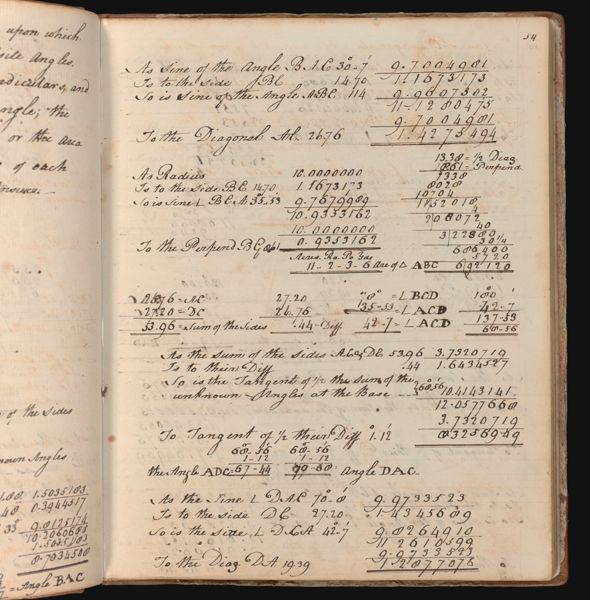 upon which
site angles.
ndiculars, and
ngle; the
or the area
of each
of the sides
nown Angles
1.5035183
0.3944517
35 9.8125174
= Angle BAC
34
As Sine of the Angle B.A.C 30-7 9.7004981
Is to the side BC 14.70 1.1673173
So is Sine of the Angle ABC. 114 9.9607302
11.1280475
9.7004981
To the Diagonal AC. 26.76 1.4275494
13.38 = 1/2 Diag.
8.61 = Perpend.
As Radius 10.0000000 1338
Is to the Side BC 14.70. 1.1673173 8028
So is Sine L BCA 35,53 9.7679989 10704
10.9353162 11|52018
10.0000000 4
To the Perpend. B 8.61 0.9353162 2|08072
40
3|22880
30 1/4
686400
5720
6|92120
Acres. Ro. Po. Yds
11-2-3-6 Are of Δ ABC
26.76 = AC 27.20 78° = L BCD 180
27.20 = DC 26.76 35-53 = L ACB 42-7
53.96 = Sum of the Sides .44 = Diff 42-7 = L ACD 137-53
68-56
As the Sum of the sides AC & DC 53.96 3.7320719
Is to their Diff .44 1.6434527
So is the Tangent of 1/2 the Sum of the
unknown Angles at the Base 68.56 10.4143141
12.0577668
3.7320719
To Tangent of 1/2 their Diff 1.12 8.3256949
68-56 68-56
1-12 1-12
the Angle ADC = 67-44 70-08 Angle DAC.
As the Sine L DAC 70-8 9.9733523
Is to the side DC 27.20 1.4345689
So is the side L DCA 42-7 9.8264910
11.2610599
9.9733523
To the Diag DA 19.39 1.2877076